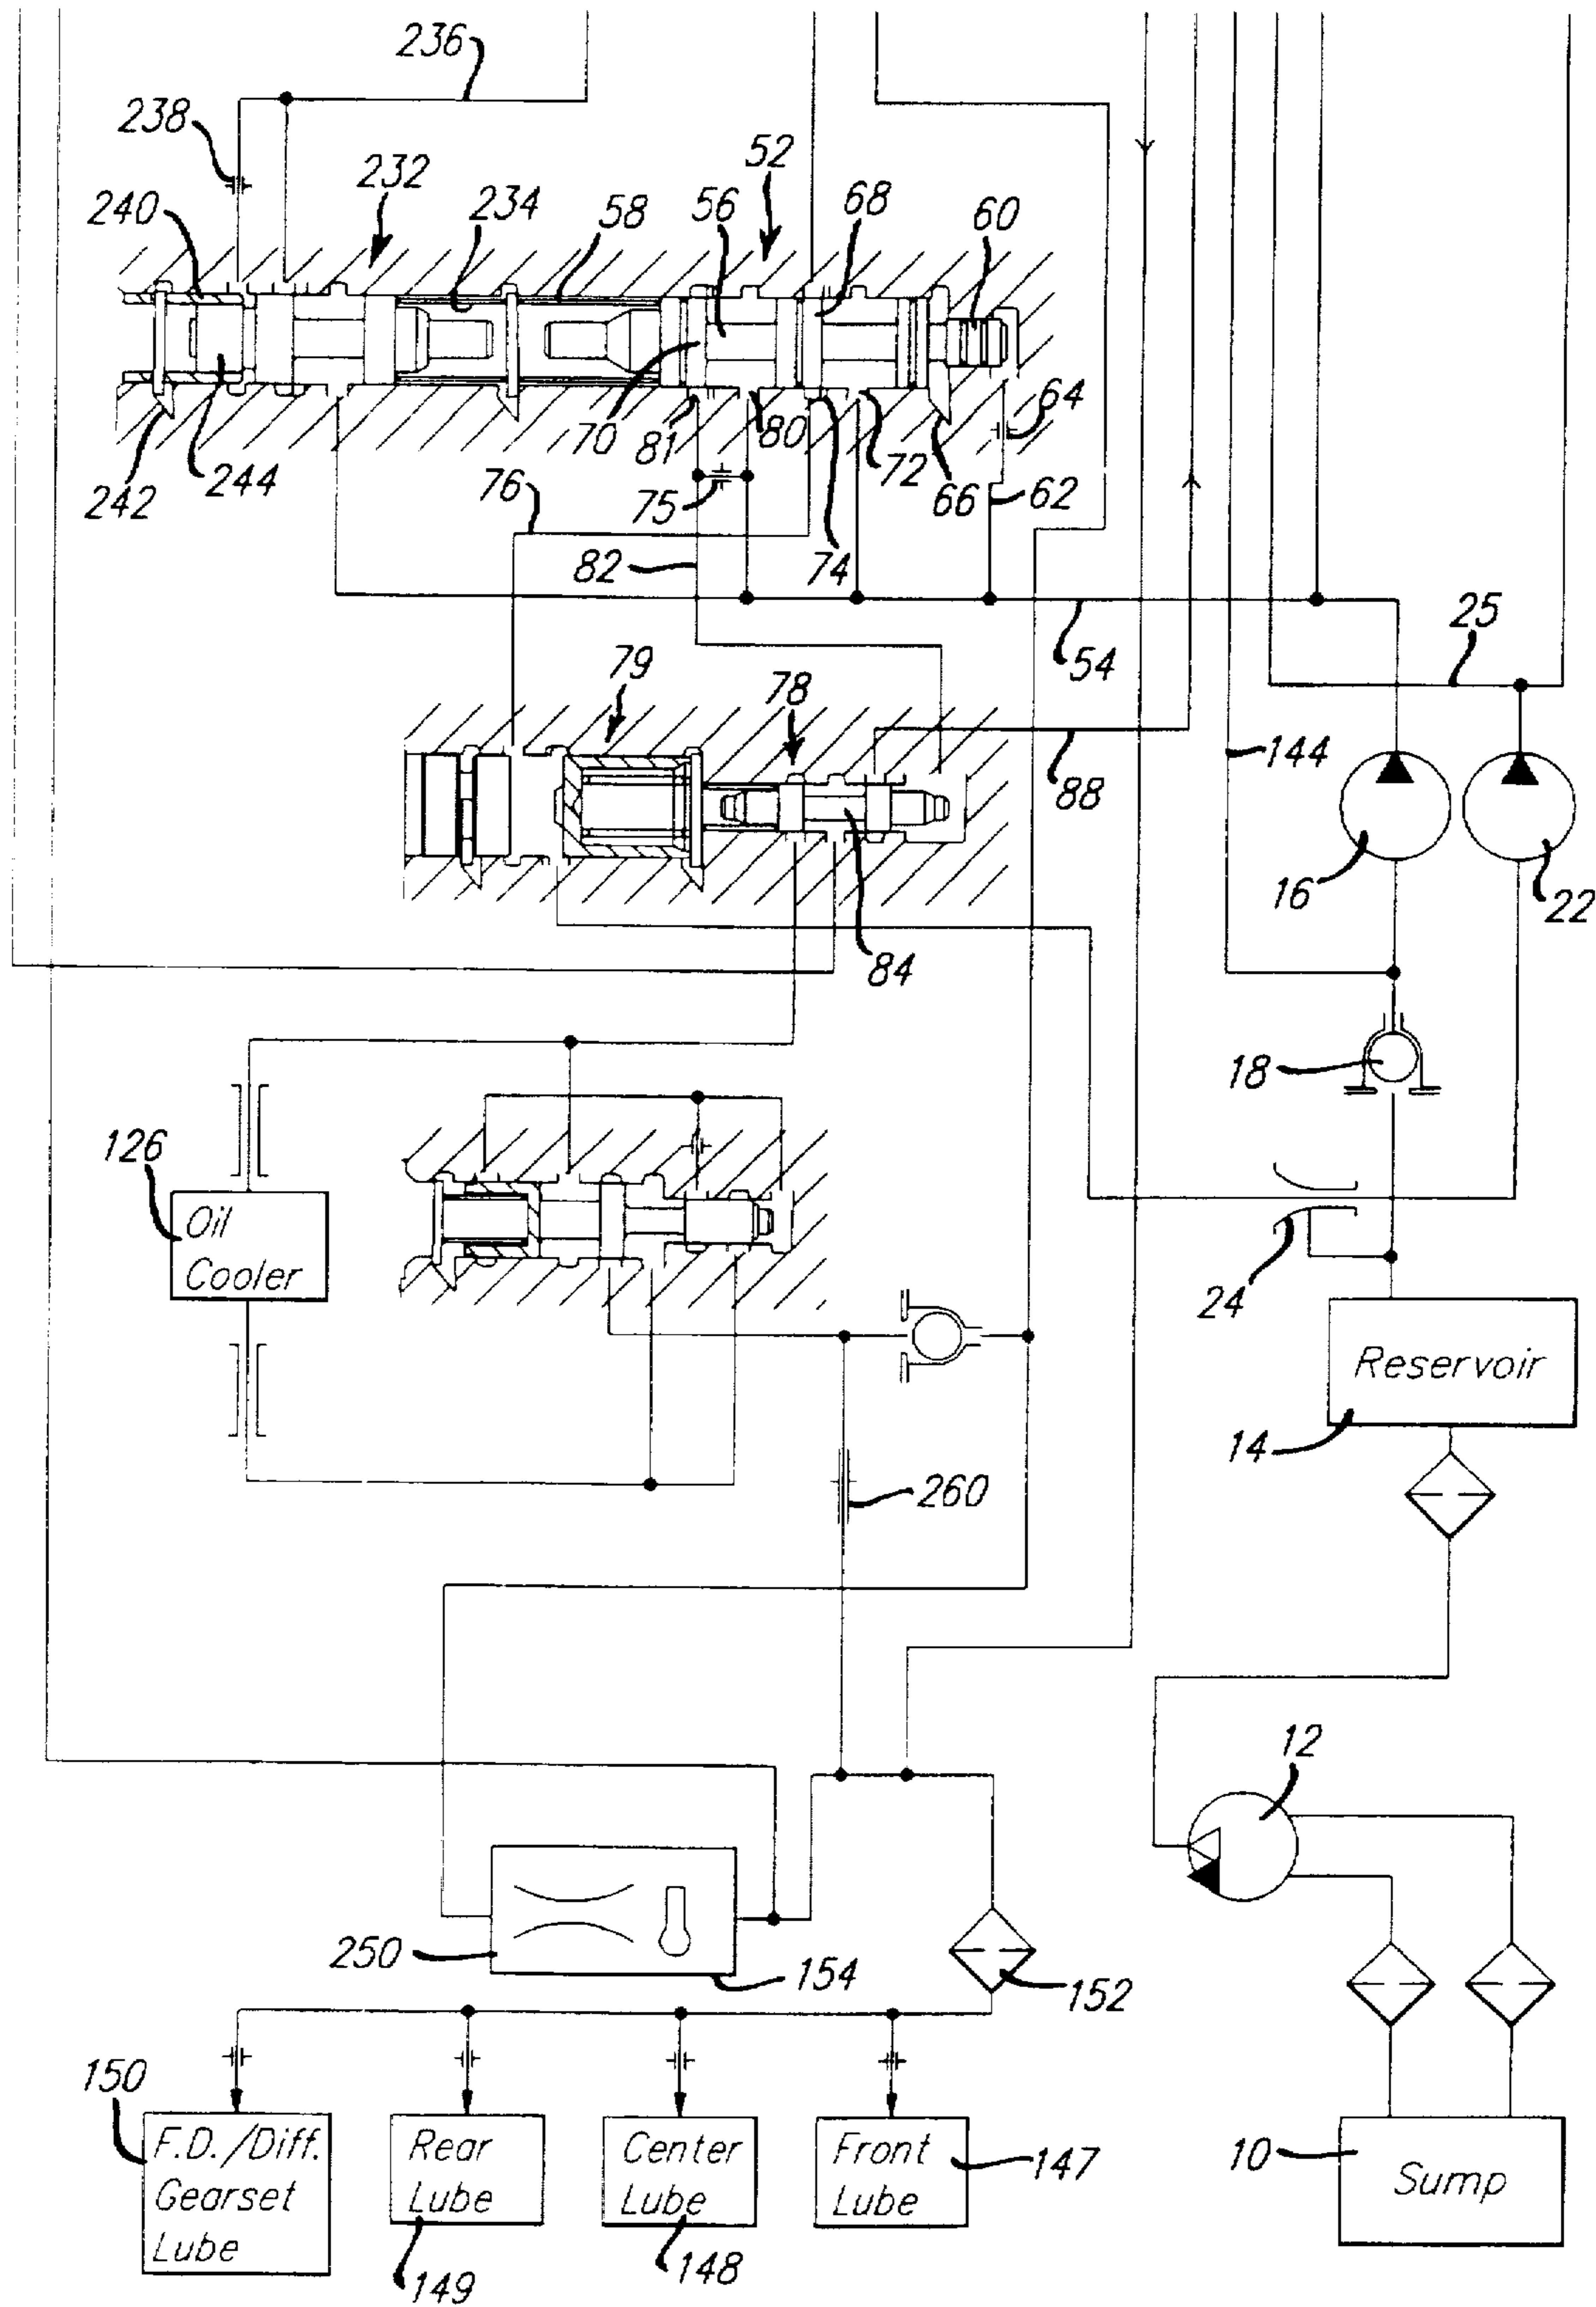 236
238
52
232
240
234
58
56
68
60
70
81
80
72
64
242
244
76
75
74
66
62
82
54
25
79
78
88
144
16
22
84
18
126
Oil
Cooler
24
Reservoir
14
260
12
250
154
152
150
F.D./Diff.
Gearset
Lube
Rear
Lube
149
Center
Lube
148
Front
Lube
147
10
Sump